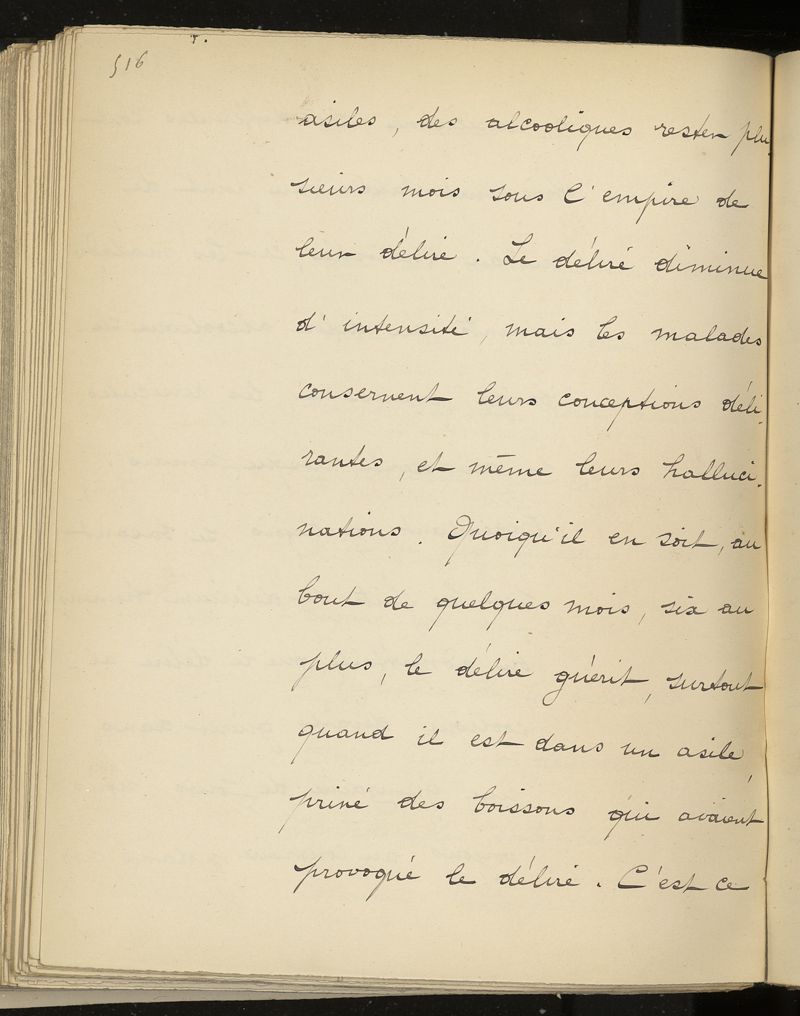 516
asiles, des alcooliques rester plu-
sieurs mois sous l'empire de
leur délire. Le délire diminue
d'intensité, mais les malades
conservent leurs conceptions déli-
rantes, et même leurs halluci-
nations. Quoiqu'il en soit, au
bout de quelques mois, six au
plus, le délire guérit, surtout
quand il est dans un asile,
privé des boissons qui avaient
provoqué le délire. C'est ce